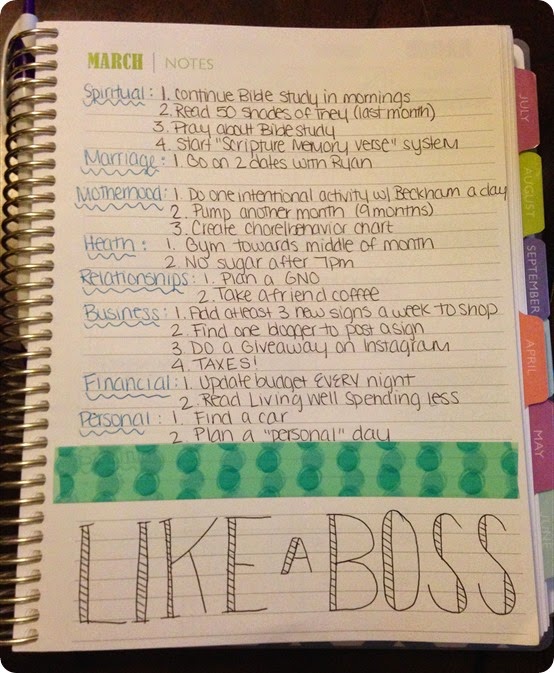 MARCH | NOTES
Spiritual: 1. Continue Bible study in mornings
2. Read 50 shades of They (last month)
3. Pray about Bible study
4. Start "Scripture Memory Verse" system
Marriage: 1. Go on 2 dates with Ryan
Motherhood: 1. Do one intentional activity w/ Beckham a day
2. Pump another month (9 months)
3. Create chore/behavior chart
Heath: 1. Gym towards middle of month
2. No sugar after 7pm
Relationships: 1. Plan a GNO
2. Take a friend coffee
Business: 1. Add atleast 3 new signs a week to shop
2. Find one blogger to post a sign
3. Do a Giveaway on Instagram
4. TAXES!
Financial: 1. Update budget EVERY night
2. Read Living Well Spending Less
Personal: 1. Find a car
2. Plan a "personal" day
LIKE A BOSS
JULY
AUGUST
SEPTEMBER
APRIL
MAY